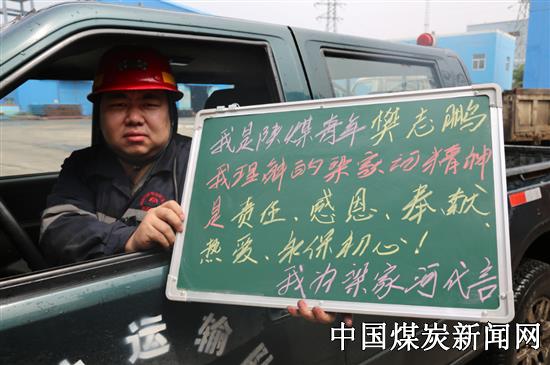 我是陕煤青年樊志鹏
我理解的梁家河精神
是责任、感恩、奉献、
热爱、永保初心！
我为梁家河代言
运输
中国煤炭新闻网